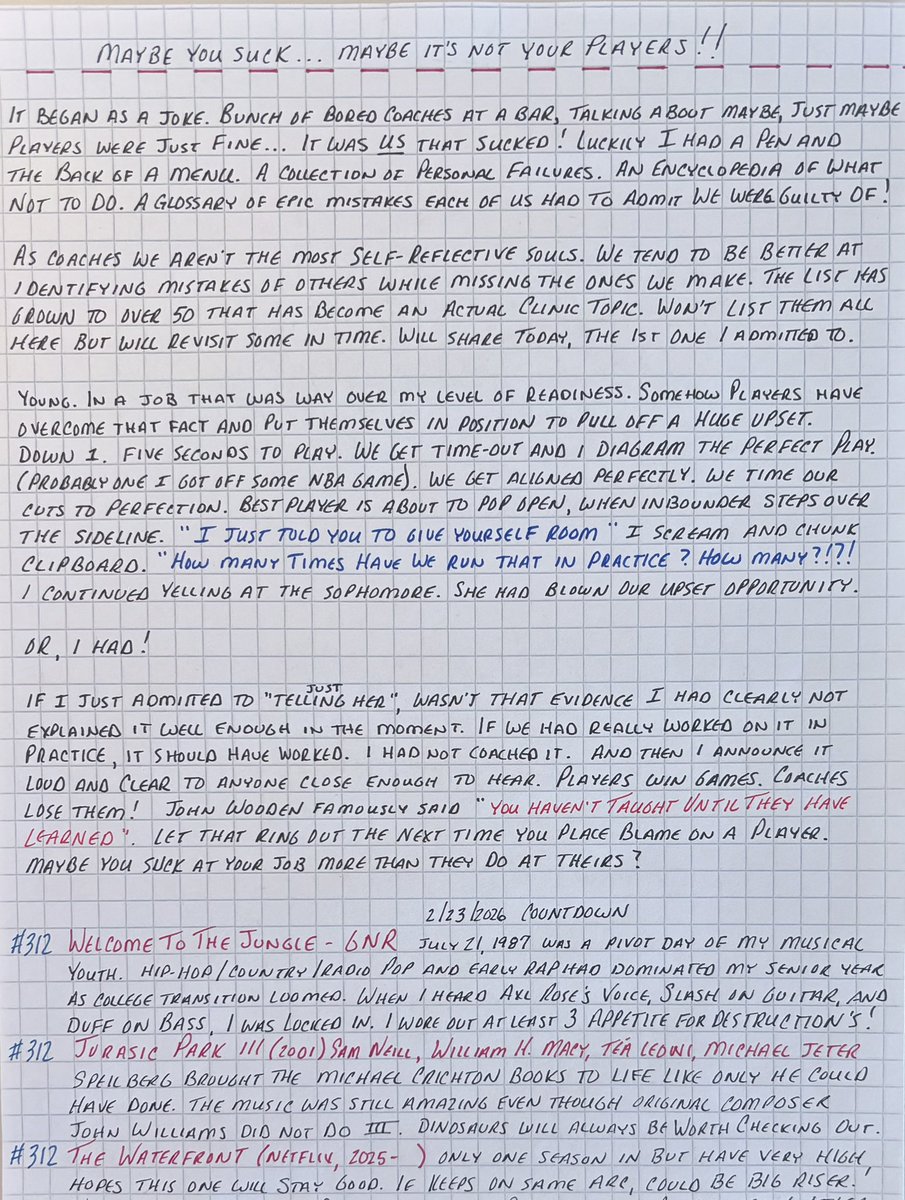 MAYBE YOU SUCK... MAYBE IT'S NOT YOUR PLAYERS!!
IT BEGAN AS A JOKE. BUNCH OF BORED COACHES AT A BAR, TALKING ABOUT MAYBE, JUST MAYBE
PLAYERS WERE JUST FINE... IT WAS US THAT SUCKED! LUCKILY I HAD A PEN AND
THE BACK OF A MENU. A COLLECTION OF PERSONAL FAILURES. AN ENCYCLOPEDIA OF WHAT
NOT TO DO. A GLOSSARY OF EPIC MISTAKES EACH OF US HAD TO ADMIT WE WERE GUILTY OF!
AS COACHES WE AREN'T THE MOST SELF-REFLECTIVE SOULS. WE TEND TO BE BETTER AT
IDENTIFYING MISTAKES OF OTHERS WHILE MISSING THE ONES WE MAKE. THE LIST HAS
GROWN TO OVER 50 THAT HAS BECOME AN ACTUAL CLINIC TOPIC. WON'T LIST THEM ALL
HERE BUT WILL REVISIT SOME IN TIME. WILL SHARE TODAY, THE 1ST ONE I ADMITTED TO.
YOUNG. IN A JOB THAT WAS WAY OVER MY LEVEL OF READINESS. SOMEHOW PLAYERS HAVE
OVERCOME THAT FACT AND PUT THEMSELVES IN POSITION TO PULL OFF A HUGE UPSET.
DOWN 1. FIVE SECONDS TO PLAY. WE GET TIME-OUT AND I DIAGRAM THE PERFECT PLAY.
(PROBABLY ONE I GOT OFF SOME NBA GAME). WE GET ALIGNED PERFECTLY. WE TIME OUR
CUTS TO PERFECTION. BEST PLAYER IS ABOUT TO POP OPEN, WHEN INBOUNDER STEPS OVER
THE SIDELINE. "I JUST TOLD YOU TO GIVE YOURSELF ROOM" I SCREAM AND CHUNK
CLIPBOARD. "HOW MANY TIMES HAVE WE RUN THAT IN PRACTICE? HOW MANY?!?!
I CONTINUED YELLING AT THE SOPHOMORE. SHE HAD BLOWN OUR UPSET OPPORTUNITY.
OR, I HAD!
IF I JUST ADMITTED TO "JUST TELLING HER", WASN'T THAT EVIDENCE I HAD CLEARLY NOT
EXPLAINED IT WELL ENOUGH IN THE MOMENT. IF WE HAD REALLY WORKED ON IT IN
PRACTICE, IT SHOULD HAVE WORKED. I HAD NOT COACHED IT. AND THEN I ANNOUNCE IT
LOUD AND CLEAR TO ANYONE CLOSE ENOUGH TO HEAR. PLAYERS WIN GAMES. COACHES
LOSE THEM! JOHN WOODEN FAMOUSLY SAID "YOU HAVEN'T TAUGHT UNTIL THEY HAVE
LEARNED". LET THAT RING OUT THE NEXT TIME YOU PLACE BLAME ON A PLAYER.
MAYBE YOU SUCK AT YOUR JOB MORE THAN THEY DO AT THEIRS?
2/23/2026 COUNTDOWN
#312 WELCOME TO THE JUNGLE - GNR JULY 21, 1987 WAS A PIVOT DAY OF MY MUSICAL
YOUTH. HIP-HOP/COUNTRY/RADIO POP AND EARLY RAP HAD DOMINATED MY SENIOR YEAR
AS COLLEGE TRANSITION LOOMED. WHEN I HEARD AXL ROSE'S VOICE, SLASH ON GUITAR, AND
DUFF ON BASS, I WAS LOCKED IN. I WORE OUT AT LEAST 3 APPETITE FOR DESTRUCTION'S!
#312 JURASIC PARK III (2001) SAM NEILL, WILLIAM H. MACY, TÉA LEONI, MICHAEL JETER
SPEILBERG BROUGHT THE MICHAEL CRICHTON BOOKS TO LIFE LIKE ONLY HE COULD
HAVE DONE. THE MUSIC WAS STILL AMAZING EVEN THOUGH ORIGINAL COMPOSER
JOHN WILLIAMS DID NOT DO III. DINOSAURS WILL ALWAYS BE WORTH CHECKING OUT.
#312 THE WATERFRONT (NETFLIX, 2025- ) ONLY ONE SEASON IN BUT HAVE VERY HIGH
HOPES THIS ONE WILL STAY GOOD. IF KEEPS ON SAME ARC, COULD BE BIG RISER!